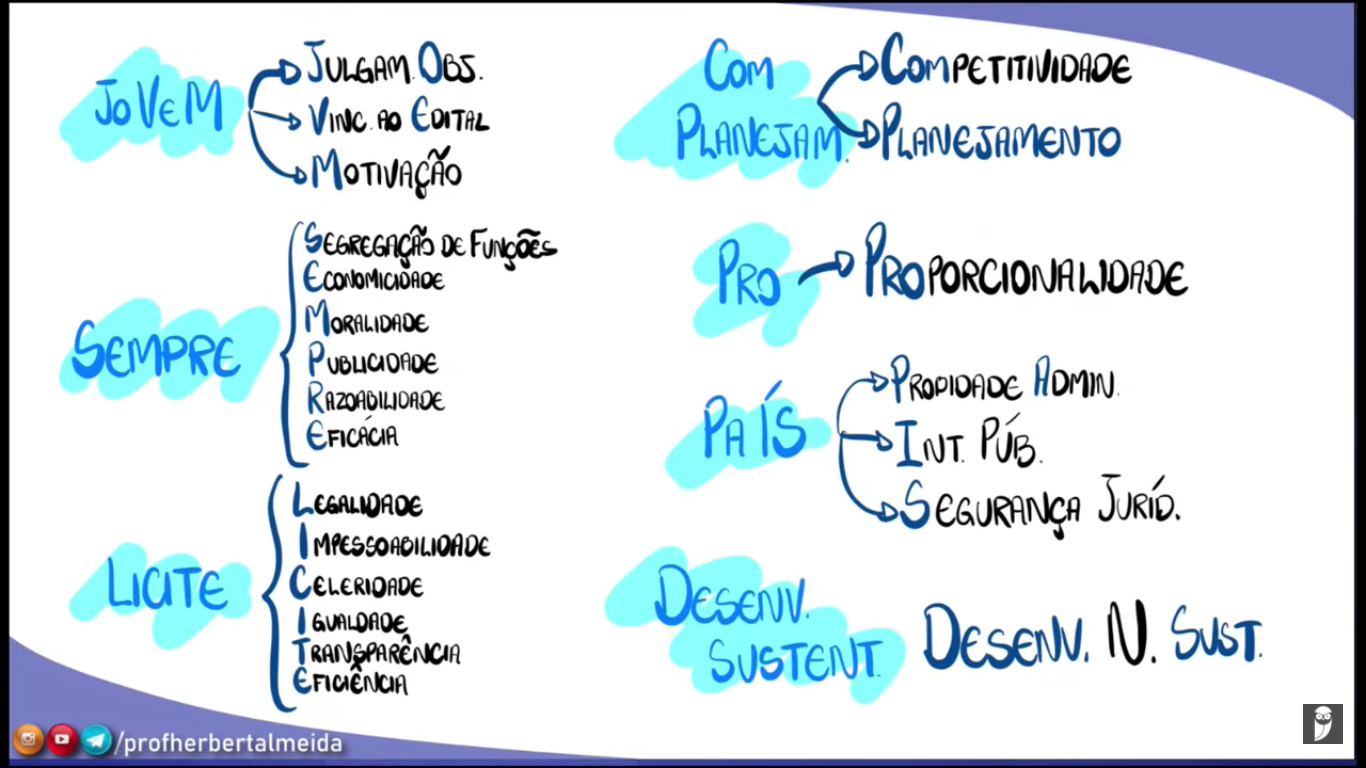 JOVEM
JULGAM. OBJ.
VINC. AO EDITAL
MOTIVAÇÃO
SEMPRE
SEGREGAÇÃO DE FUNÇÕES
ECONOMICIDADE
MORALIDADE
PUBLICIDADE
RAZOABILIDADE
EFICÁCIA
LICITE
LEGALIDADE
IMPESSOABILIDADE
CELERIDADE
IGUALDADE
TRANSPARÊNCIA
EFICIÊNCIA
COM
PLANEJAM.
COMPETITIVIDADE
PLANEJAMENTO
PRO
PROPORCIONALIDADE
PAÍS
PROPIDADE ADMIN.
INT. PÚB.
SEGURANÇA JURÍD.
DESENV.
SUSTENT.
DESENV. N. SUST.
/profherbertalmeida